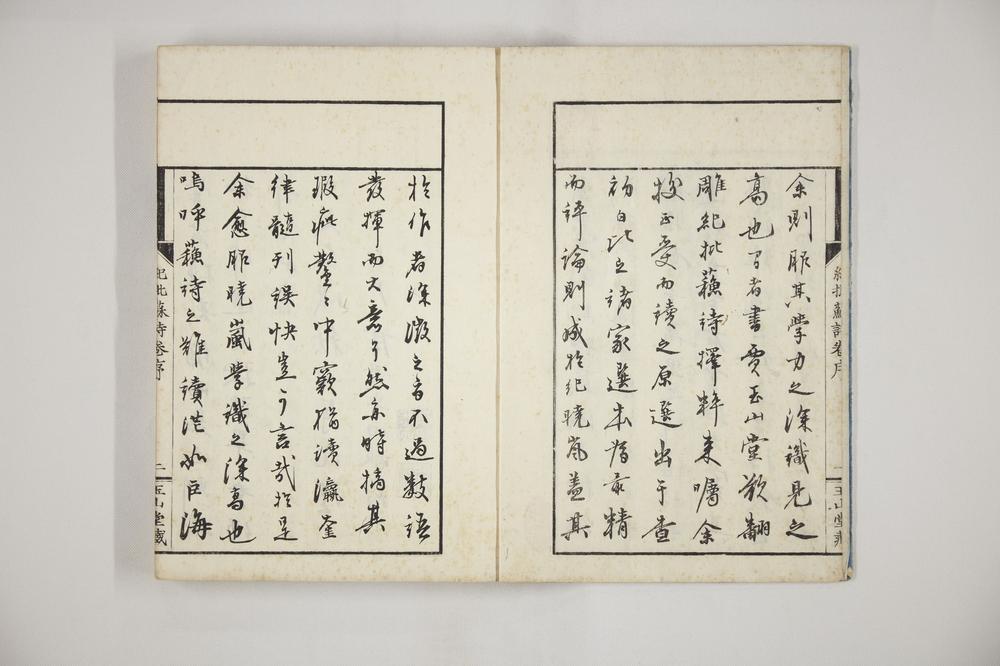 余則服其學力之深識見之
高也者書賈玉山堂欲翻
雕紀批蘇詩擇粹來囑余
校正受而讀之原選出于查
初白比之諸家選本為最精
而評論則成於紀曉嵐蓋其
紀批蘇詩卷序
一
玉山堂藏
於作者深微之旨不過數語
發揮而大意了然亦時摘其
瑕疵鑿々中窾猶讀瀛奎
律髓刊誤快豈可言哉於是
余愈服曉嵐學識之深高也
嗚呼蘇詩之難讀茫如巨海
紀批蘇詩卷序
二
玉山堂藏